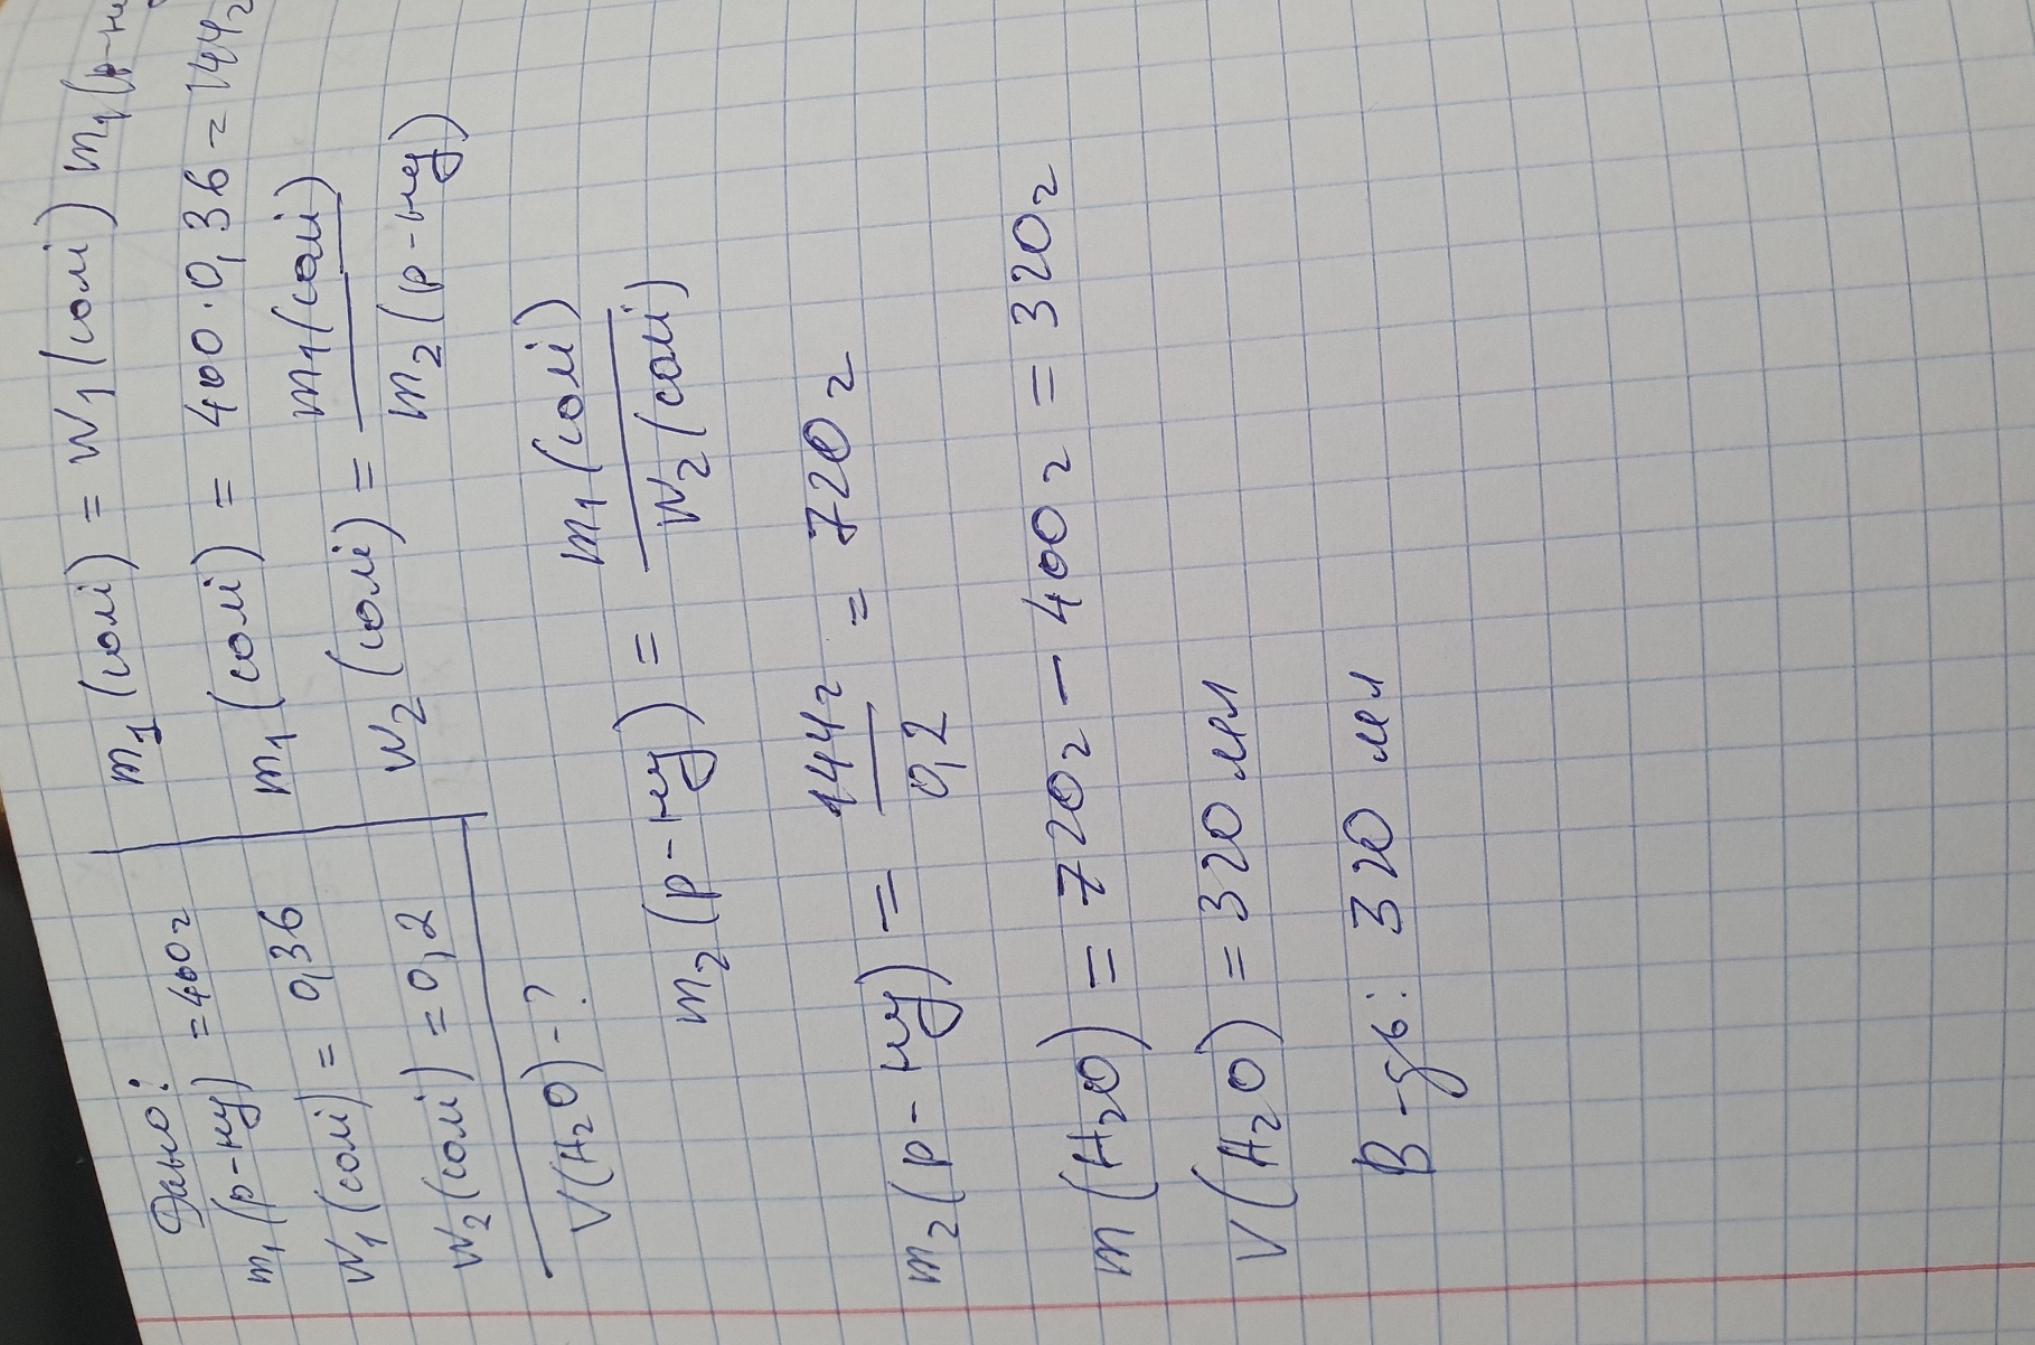 Дано:
m₁(р-ну) = 400г
W₁(солі) = 0,36
W₂(солі) = 0,2
V(H₂O) - ?
m₁(солі) = W₁(солі) m₁(р-ну
m₁(солі) = 400 · 0,36 = 144г
W₂(солі) = m₁(солі) / m₂(р-ну)
m₂(р-ну) = m₁(солі) / W₂(солі)
m₂(р-ну) = 144г / 0,2 = 720г
m(H₂O) = 720г - 400г = 320г
V(H₂O) = 320 мл
В-дь: 320 мл